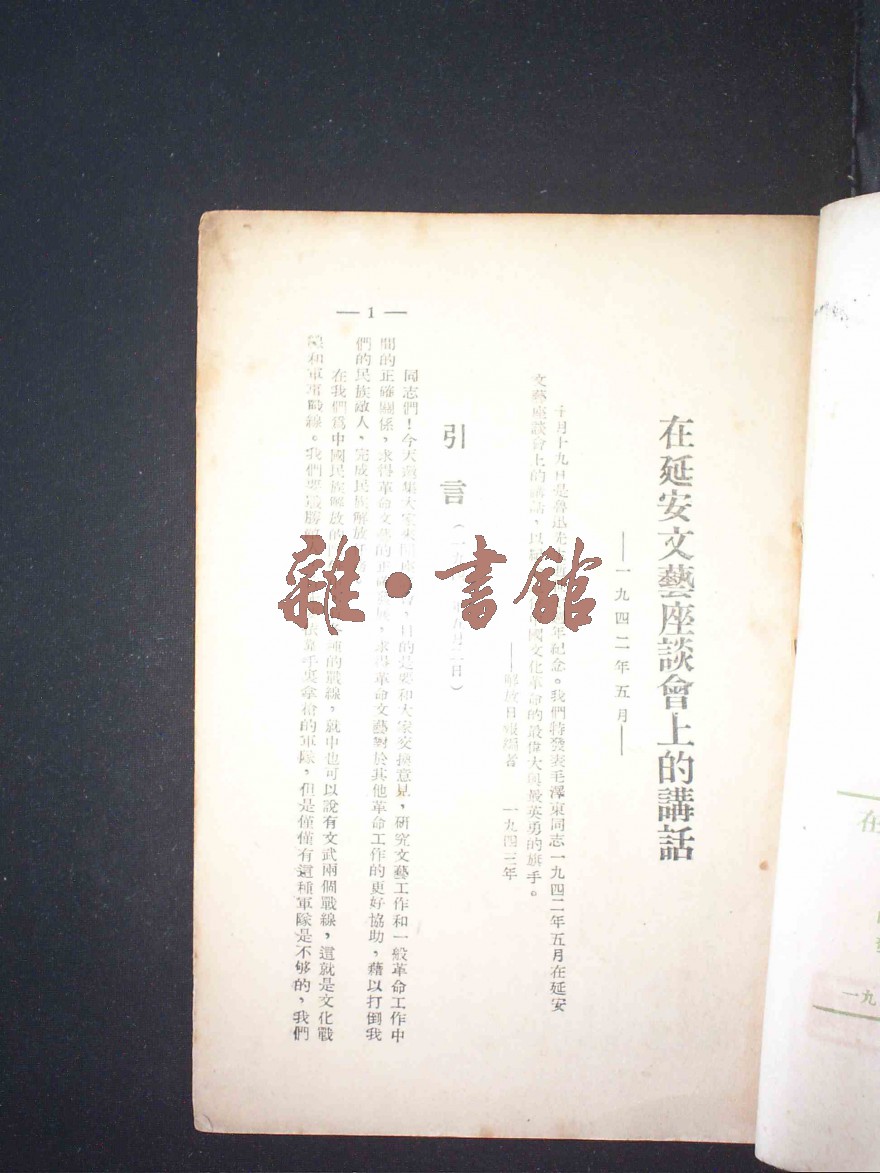 在延安文藝座談會上的講話
——一九四二年五月——
十月十九日是魯迅先生 年紀念。我們特發表毛澤東同志一九四二年五月在延安
文藝座談會上的講話,以紀 國文化革命的最偉大與最英勇的旗手。
——解放日報編者 一九四三年
引言(一九 年五月二日)
同志們!今天邀集大家來開座 會,目的是要和大家交換意見,研究文藝工作和一般革命工作中
間的正確關係,求得革命文藝的正確 展,求得革命文藝對於其他革命工作的更好協助,藉以打倒我
們的民族敵人,完成民族解放
在我們爲中國民族解放的 種的戰線,就中也可以說有文武兩個戰線,這就是文化戰
線和軍事戰線。我們要戰勝 依靠手裏拿槍的軍隊,但是僅僅有這種軍隊是不够的,我們
— 1 —
雜·書館
在
一九